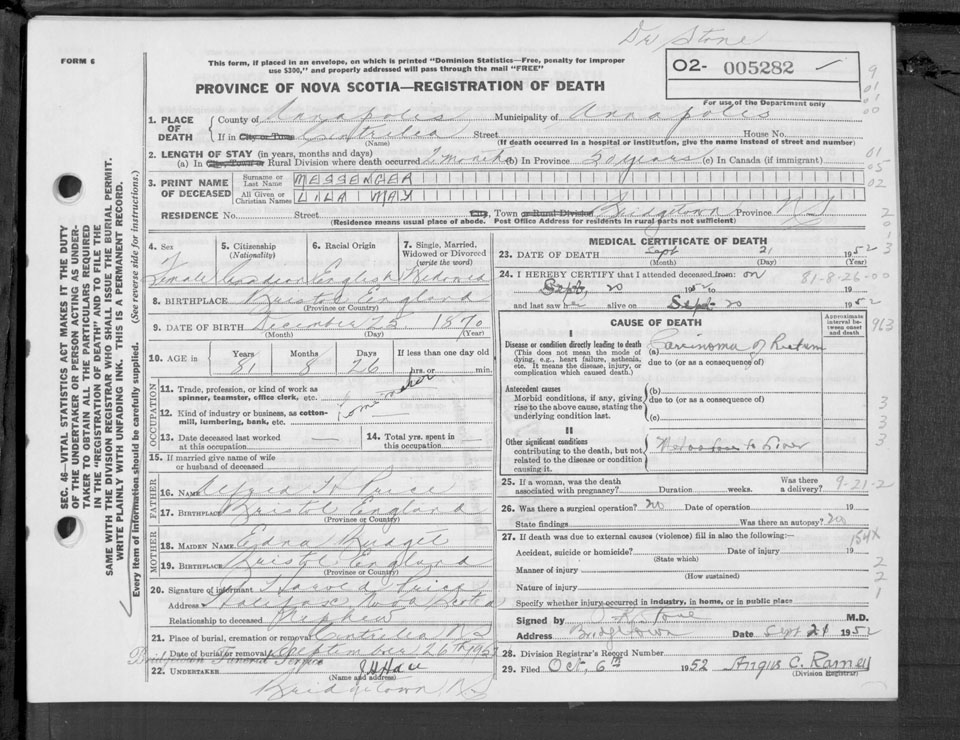 Dr Stone
FORM 6
This form, if placed in an envelope, on which is printed "Dominion Statistics—Free, penalty for improper
use $300," and properly addressed will pass through the mail "FREE"
02- 005282
PROVINCE OF NOVA SCOTIA—REGISTRATION OF DEATH
For use of the Department only
1. PLACE OF DEATH County of Annapolis Municipality of Annapolis
If in City or Town Centrelea Street House No.
(Name) (If death occurred in a hospital or institution, give the name instead of street and number)
2. LENGTH OF STAY (in years, months and days)
(a) In City, Town or Rural Division where death occurred 2 months (b) In Province 30 years (c) In Canada (if immigrant)
3. PRINT NAME OF DECEASED
Surname or Last Name MESSENGER
All Given or Christian Names LILA MAY
RESIDENCE No. Street City, Town or Rural Division Bridgetown Province N S
(Residence means usual place of abode. Post Office Address for residents in rural parts not sufficient)
4. Sex Female
5. Citizenship (Nationality) Canadian
6. Racial Origin English
7. Single, Married, Widowed or Divorced (write the word) Widowed
8. BIRTHPLACE Bristol England
(Province or Country)
9. DATE OF BIRTH December 25 1870
(Month) (Day) (Year)
10. AGE in Years 81 Months 8 Days 26 If less than one day old hrs. or min.
OCCUPATION
11. Trade, profession, or kind of work as
spinner, teamster, office clerk, etc.
12. Kind of industry or business, as cotton-
mill, lumbering, bank, etc.
Homemaker
13. Date deceased last worked at this occupation —
14. Total yrs. spent in this occupation —
15. If married give name of wife
or husband of deceased
FATHER
16. NAME Alfred H Price
17. BIRTHPLACE Bristol England
(Province or Country)
MOTHER
18. MAIDEN NAME Edna Budget
19. BIRTHPLACE Bristol England
(Province or Country)
20. Signature of informant Harold Price
Address Halifax Nova Scotia
Relationship to deceased Nephew
21. Place of burial, cremation or removal Centrelea N S
Date of burial or removal September 26th 1952
Bridgetown Funeral Service
22. UNDERTAKER
(Name and address)
Bridgetown N S
MEDICAL CERTIFICATE OF DEATH
23. DATE OF DEATH Sept 21 1952
(Month) (Day) (Year)
24. I HEREBY CERTIFY that I attended deceased from: on
81-8-26-00
Sept. 20 1952 to 19
and last saw her alive on Sept 20 1952
CAUSE OF DEATH
Approximate interval between onset and death
963
I
Disease or condition directly leading to death
(This does not mean the mode of
dying, e.g., heart failure, asthenia,
etc. It means the disease, injury, or
complication which caused death.)
(a) Carcinoma of Rectum
due to (or as a consequence of)
Antecedent causes
Morbid conditions, if any, giving
rise to the above cause, stating the
underlying condition last.
(b)
due to (or as a consequence of)
(c)
II
Other significant conditions
contributing to the death, but not
related to the disease or condition
causing it.
Metastases to Liver
25. If a woman, was the death
associated with pregnancy? Duration weeks. Was there a delivery?
9-21-2
26. Was there a surgical operation? No Date of operation 19
State findings Was there an autopsy? No
27. If death was due to external causes (violence) fill in also the following:—
154X
Accident, suicide or homicide? Date of injury 19
(State which)
Manner of injury
(How sustained)
Nature of injury
Specify whether injury occurred in industry, in home, or in public place
Signed by Stone M.D.
Address Bridgetown Date Sept 21 1952
28. Division Registrar's Record Number
29. Filed Oct. 6th 1952 Angus C. Ramey
(Division Registrar)
SEC. 46—VITAL STATISTICS ACT MAKES IT THE DUTY
OF THE UNDERTAKER OR PERSON ACTING AS UNDER-
TAKER TO OBTAIN ALL THE PARTICULARS REQUIRED
IN THE "REGISTRATION OF DEATH" AND TO FILE THE
SAME WITH THE DIVISION REGISTRAR WHO SHALL ISSUE THE BURIAL PERMIT.
WRITE PLAINLY WITH UNFADING INK. THIS IS A PERMANENT RECORD.
Every item of information should be carefully supplied. (See reverse side for instructions.)